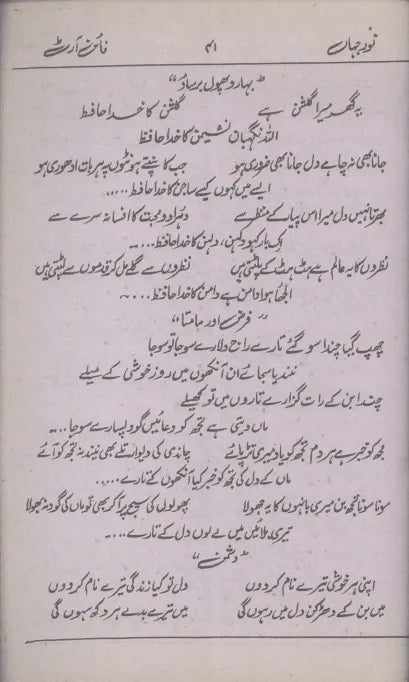 نورجہاں ۴۱ فائن آرٹ
"بہارو پھول برساؤ"
یہ گھر میرا گلشن ہے گلشن کا خدا حافظ
اللہ نگہبان نشیمن کا خدا حافظ
جانا بھی نہ چاہے دل جانا بھی ضروری ہو جب کانپتے ہونٹوں پہ ہر بات ادھوری ہو
ایسے میں کہوں کیسے ساجن کا خدا حافظ.....
بھرتا نہیں دل میرا اس پیار کے منظر سے دہراؤ محبت کا افسانہ سرے سے
اک بار کہو دلہن، دلہن کا خدا حافظ.....
نظروں کا یہ عالم ہے ہٹ ہٹ کے پلٹتی ہیں نظروں سے گلے مل کر قدموں سے لپٹتی ہیں
الجھا ہوا دامن ہے دامن کا خدا حافظ.....
"فرض اور مامتا"
چھپ گیا چندا سو گئے تارے راج دلارے سو جا تو سو جا
نندیا سجائے ان آنکھوں میں روز خوشی کے میلے
چندا بن کے رات گزارے تاروں میں تو کھیلے
ماں دیتی ہے تجھ کو دعائیں گود پسارے سو جا....
مجھ کو خبر ہے ہر دم تجھ کو یاد میری تڑپائے چاندی کی دیوار تلے بھی نیند نہ تجھ کو آئے
ماں کے دل کی تجھ کو خبر کیا آنکھوں کے تارے....
سونا سونا تجھ بن میری بانہوں کا یہ جھولا پھولوں کی سیج پر آ کر بھی تو ماں کی گود نہ بھولا
تیری بلائیں میں لے لوں دل کے تارے.....
"دشمن"
اپنی ہر خوشی تیرے نام کر دوں دل تو کیا زندگی تیرے نام کر دوں
میں بن کے دھڑکن دل میں رہوں گی میں تیرے بدلے ہر دکھ سہوں گی